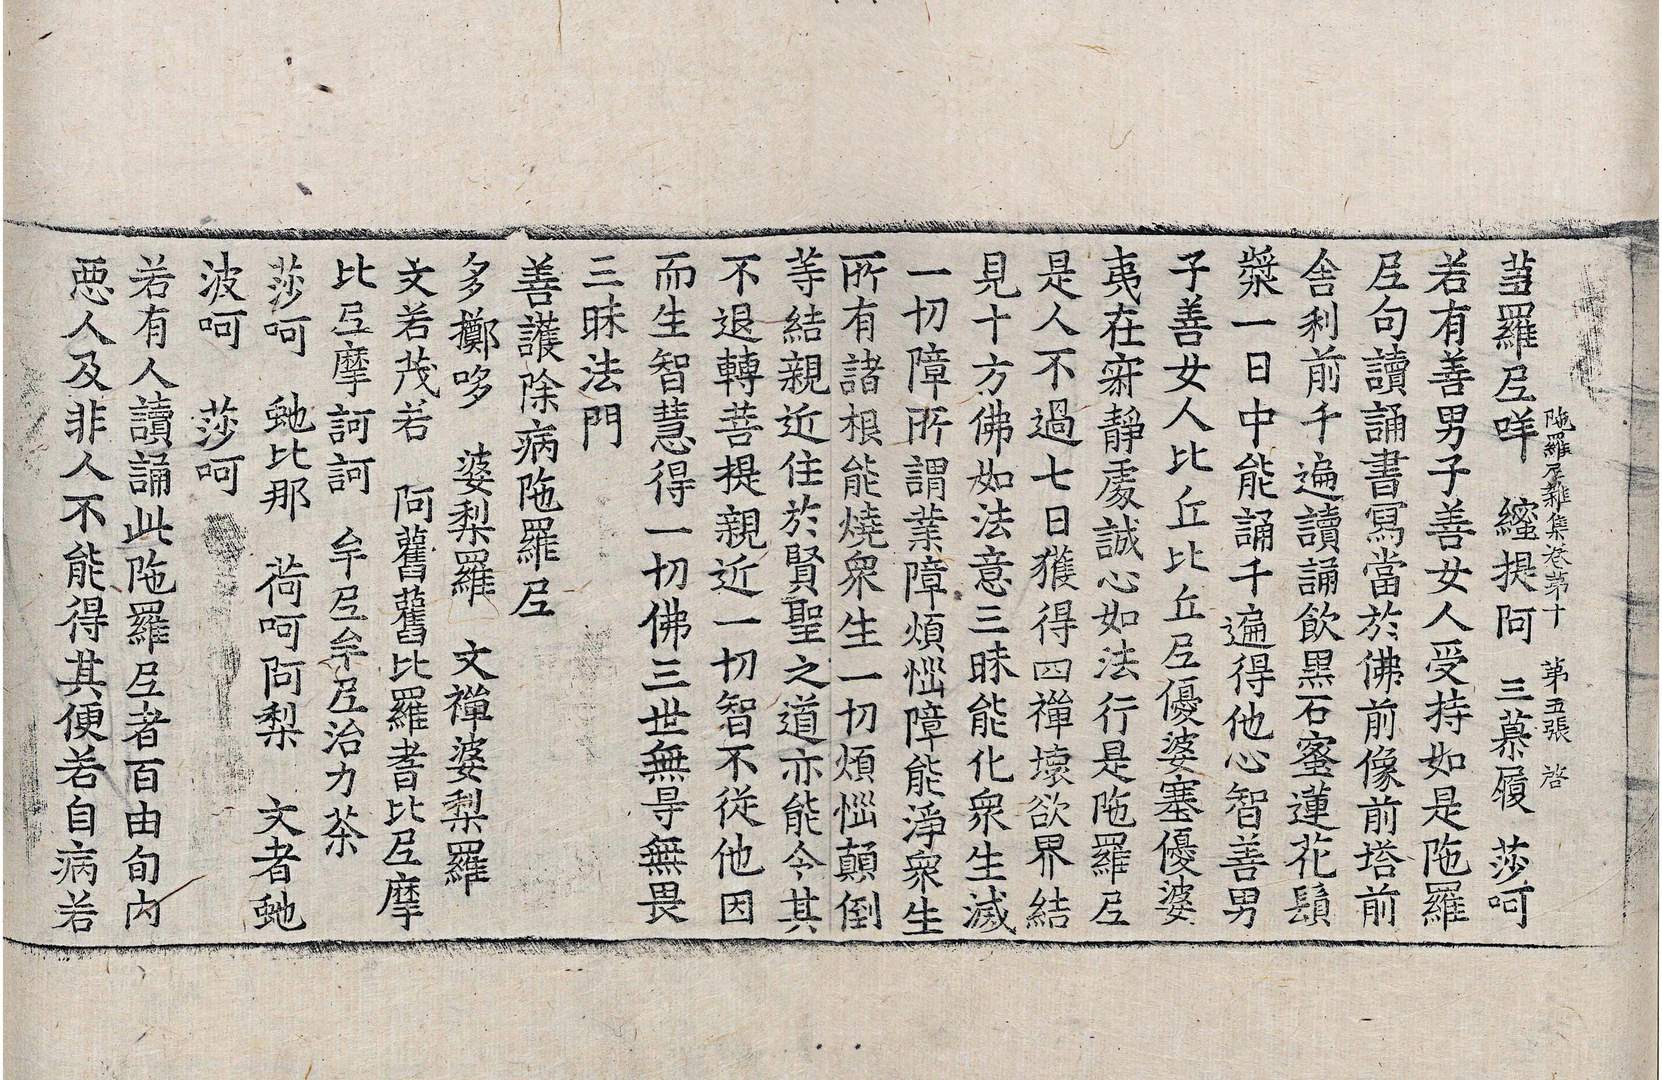 陁羅𡰱雜集卷第十　第五張　啓
羅𡰱咩　纏提阿　三慕履　莎呵
若有善男子善女人受持如是陁羅
𡰱句讀誦書寫當於佛前像前塔前
舍利前千遍讀誦飲黑石蜜蓮花鬚
漿一日中能誦千遍得他心智善男
子善女人比丘比丘𡰱優婆塞優婆
夷在寂靜處誠心如法行是陁羅𡰱
是人不過七日獲得四禪壞欲界結
見十方佛如法意三昧能化衆生滅
一切障所謂業障煩惱障能淨衆生
所有諸根能燒衆生一切煩惱顛倒
等結親近住於賢聖之道亦能令其
不退轉菩提親近一切智不從他因
而生智慧得一切佛三世無㝵無畏
三昧法門
善護除病陁羅𡰱
多擲哆　婆梨羅　文禪婆梨羅
文若茂若　阿舊舊比羅耆比𡰱摩
比𡰱摩訶訶　牟𡰱牟𡰱治力茶
莎呵　虵比那　荷呵阿梨　文者虵
波呵　莎呵
若有人讀誦此陁羅𡰱者百由旬內
惡人及非人不能得其便若自病若